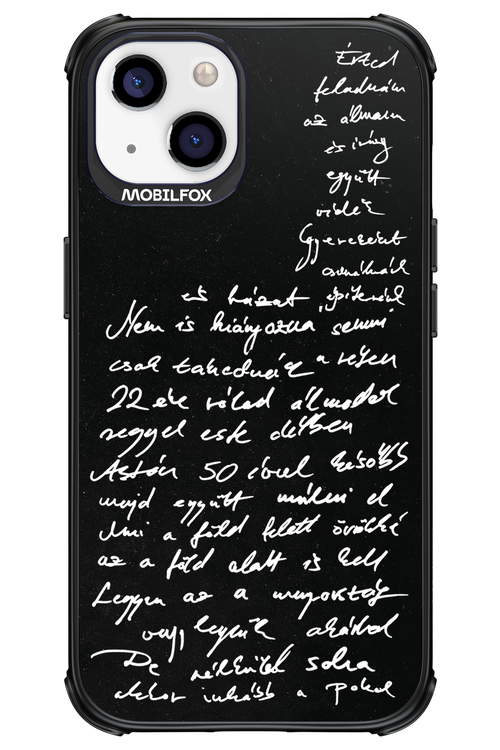 MOBILFOX
Érted
feladnám
az álmom
és irány
együtt
vidék
Gyerekeint
csinálnánk
és házat építenénk
Nem is hiányozna semmi
csak takednék a
22 éve rólad álmodok
reggel este délben
Aztán 50 évvel később
majd együtt múlni el
Ami a föld felett örökké
az a föld alatt is kell
Legyen az a mennyország
vagy legyünk akárhol
De nélküled soha
akkor inkább a Pokol